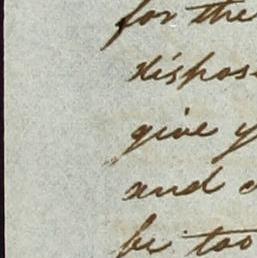 for the
dispos
give y
and
be too